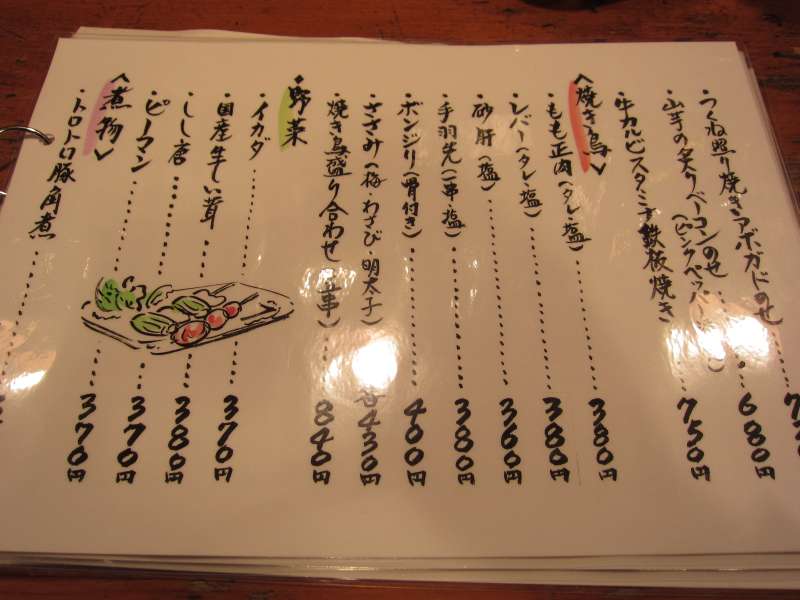 ・つくね照り焼きアボガドのせ
・山芋の炙りベーコンのせ……680円
(ピンクペッパー
・牛カルビスタミナ鉄板焼き……750円
〈焼き鳥〉
・もも正肉(タレ・塩)……380円
・レバー(タレ・塩)……380円
・砂肝(塩)……360円
・手羽先(一串・塩)……380円
・ボンジリ(骨付き)……400円
・ささみ(梅・わさび・明太子)各430円
・焼き鳥盛り合わせ(五串)840円
・野菜
・イカダ……370円
・国産生しい茸……380円
・しし唐……370円
・ピーマン……370円
〈煮物〉
・トロトロ豚角煮……